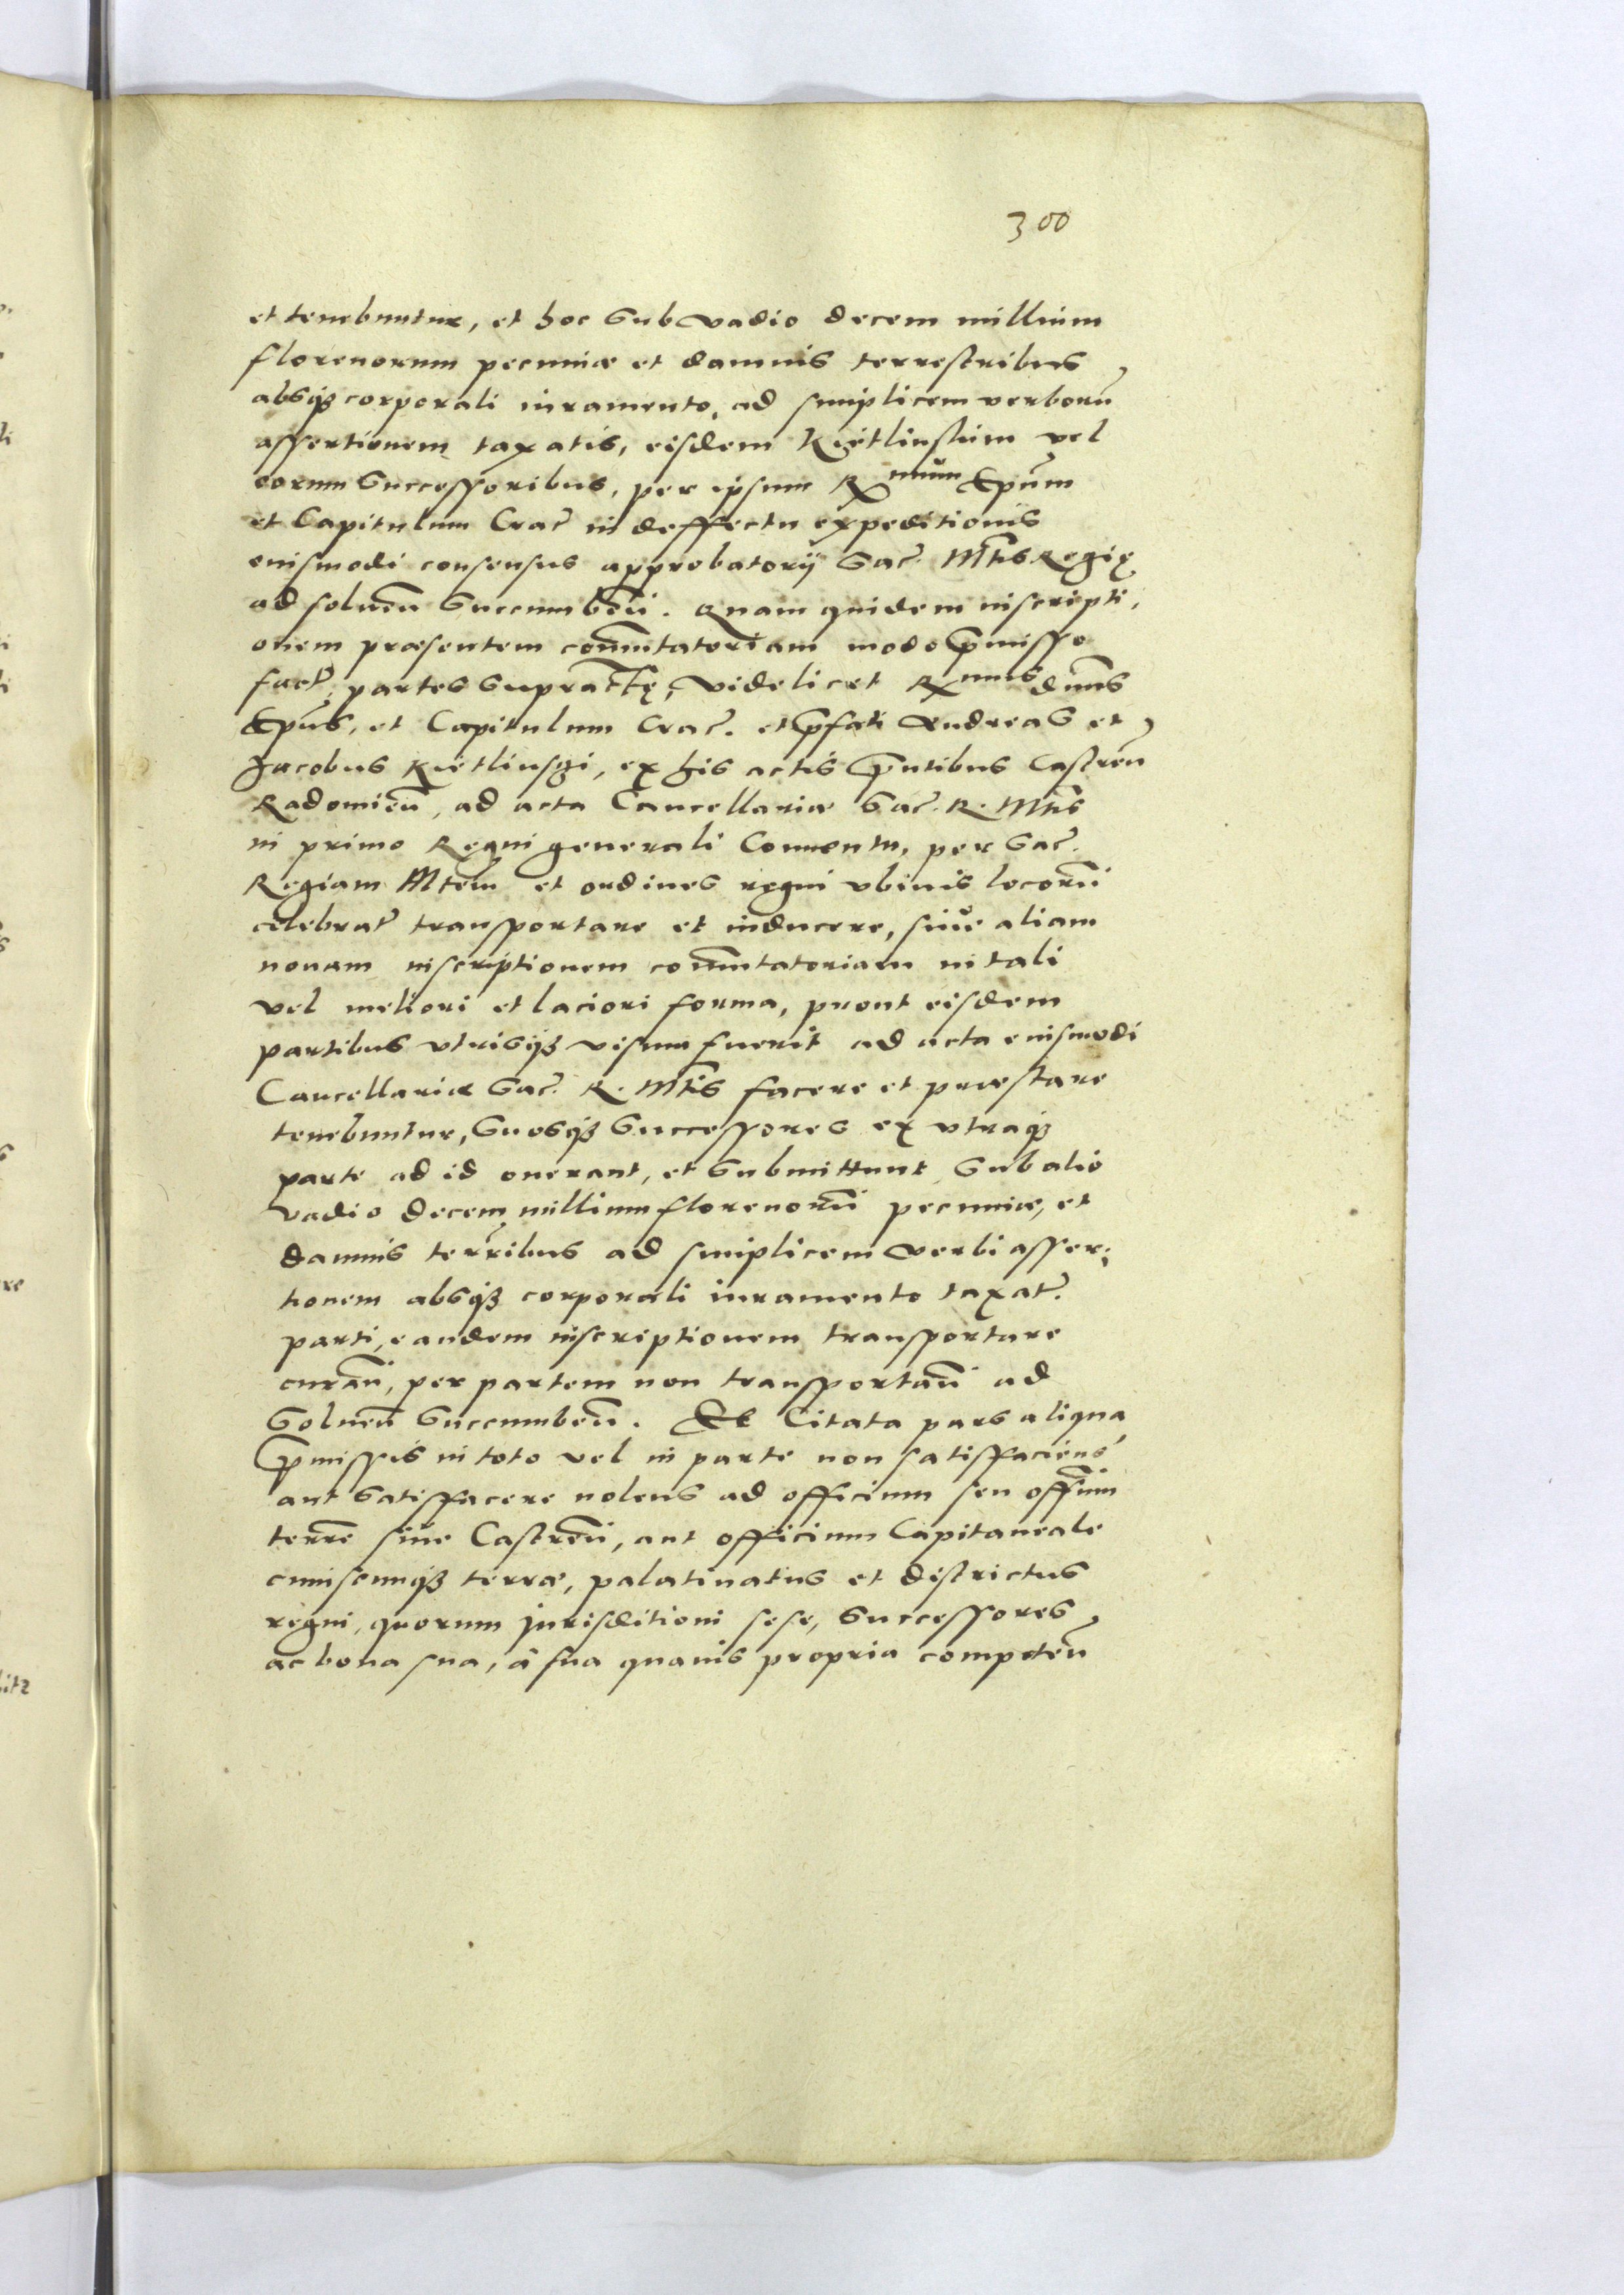 300
et tenebuntur, et hoc sub vadio decem millium
florenorum pecuniæ et damnis terrestribus
absq3 corporali iuramento, ad simplicem verborũ
assertionem taxatis, eisdem Kietlinskim vel
eorum successoribus, per ipsum R[mum] Epũm
et Capitulum Crac̃ in deffectu expeditionis
euismodi consensus approbatorÿ Sac̃. Mt̃is Regię
ad soluen̄ succumben̄. Quam quidem inscripti,
onem præsentem com̃utatoriam modo p̃misso
fact̃, partes supract̃ę, videlicet R[mus] dñus
Ep̃us, et Capitulum Crac̃. et p̃fati Andreas et
Jacobus Kietlinszi, ex his actis p̃ntibus Castren̄
Radomien̄, ad acta Cancellariæ Sac̃. R. Mt̃is
in primo Regni generali Conuentu, per Sac̃.
Regiam Mt̃em et ordines regni vbiuis locorũ
celebrat̃ transportare et inducere, siue aliam
nouam inscriptionem com̃utatoriam in tali
vel meliori et laciori forma, prout eisdem
partibus vtrisq3 visum fuerit ad acta euismodi
Cancellariæ Sac̃. R. Mt̃is facere et præstare
tenebuntur, suosq3 successores ex vtraq3
parte ad id onerant, et submittunt sub alio
vadio decem millium florenorũ pecuniæ, et
damnis terr̃ribus ad simplicem verbi asser,
tionem absq3 corporali iuramento taxat̃.
parti, eandem inscriptionem transportare
curan̄, per partem non transportan̄ ad
soluen̄ succumben̄. Et Citata pars aliqua
p̃missis in toto vel in parte non satisfaciens
aut satisfacere nolens ad officium seu off̃um
terr̃e siue Castren̄, aut officium Capitaneale
cuiuscunq3 terræ, palatinatus et districtus
regni, quorum jurisditioni sese, successores
ac bona sua, à sua quauis propria competen̄